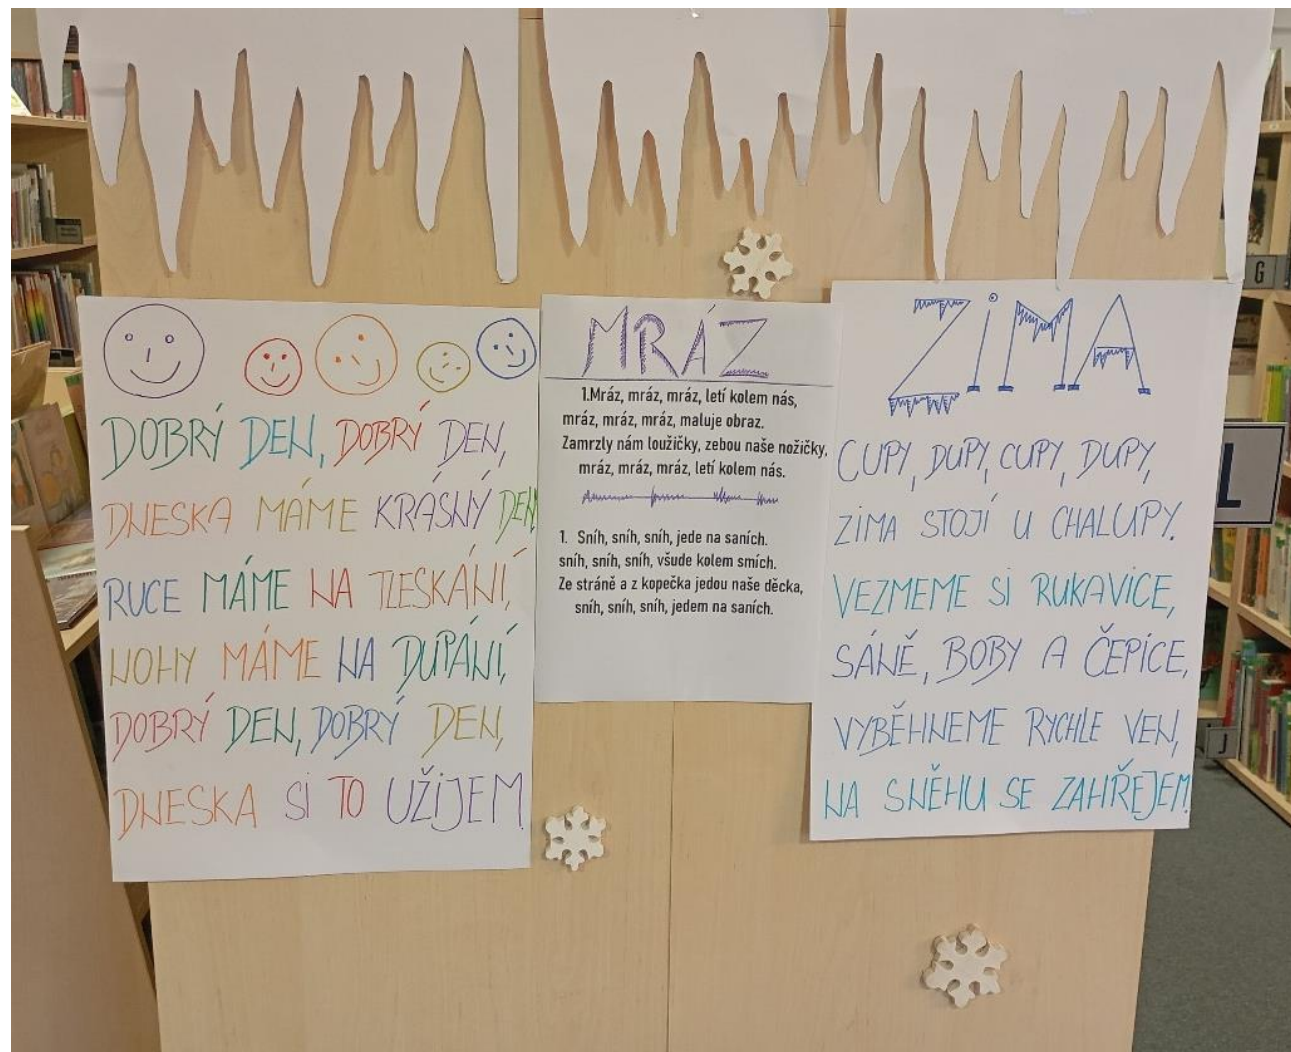 DOBRÝ DEN, DOBRÝ DEN,
DNESKA MÁME KRÁSNÝ DEN
RUCE MÁME NA TLESKÁNÍ,
NOHY MÁME NA DUPÁNÍ,
DOBRÝ DEN, DOBRÝ DEN,
DNESKA SI TO UŽIJEM.
MRÁZ
1.Mráz, mráz, mráz, letí kolem nás,
mráz, mráz, mráz, maluje obraz.
Zamrzly nám loužičky, zebou naše nožičky,
mráz, mráz, mráz, letí kolem nás.
1. Sníh, sníh, sníh, jede na saních.
sníh, sníh, sníh, všude kolem smích.
Ze stráně a z kopečka jedou naše děcka,
sníh, sníh, sníh, jedem na saních.
ZiMA
CUPY, DUPY, CUPY, DUPY,
ZIMA STOJÍ U CHALUPY.
VEZMEME SI RUKAVICE,
SÁNĚ, BOBY A ČEPICE,
VYBĚHNEME RYCHLE VEN,
NA SNĚHU SE ZAHŘEJEM.
G
L
J